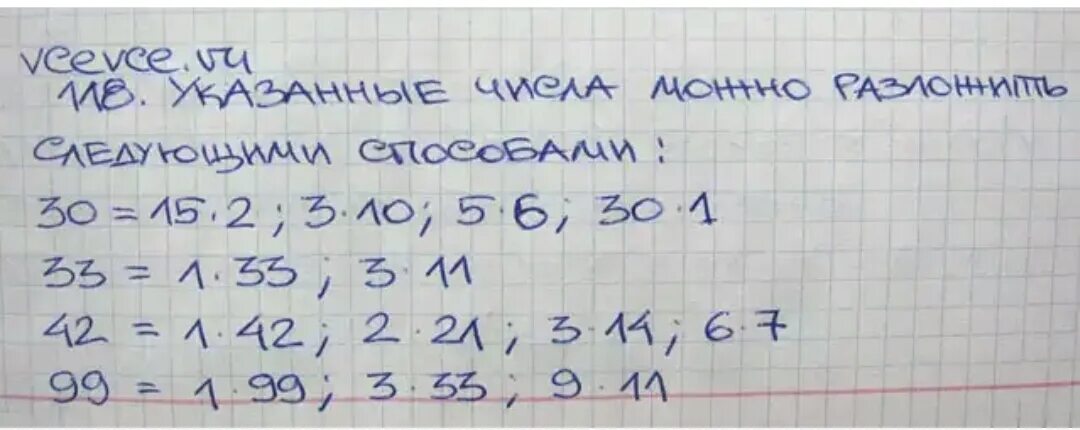 vcevce.ru
118. Указанные числа можно разложить
следующими способами:
30 = 15·2; 3·10; 5·6; 30·1
33 = 1·33; 3·11
42 = 1·42; 2·21; 3·14; 6·7
99 = 1·99; 3·33; 9·11